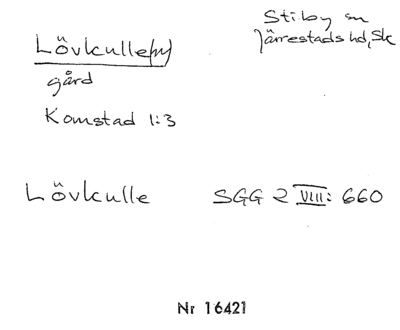 Lövkulle(n)
Stiby sn
Järrestads hd, Sk
gård
Komstad 1:3
Lövkulle SGG 2 VIII: 660
Nr 16421